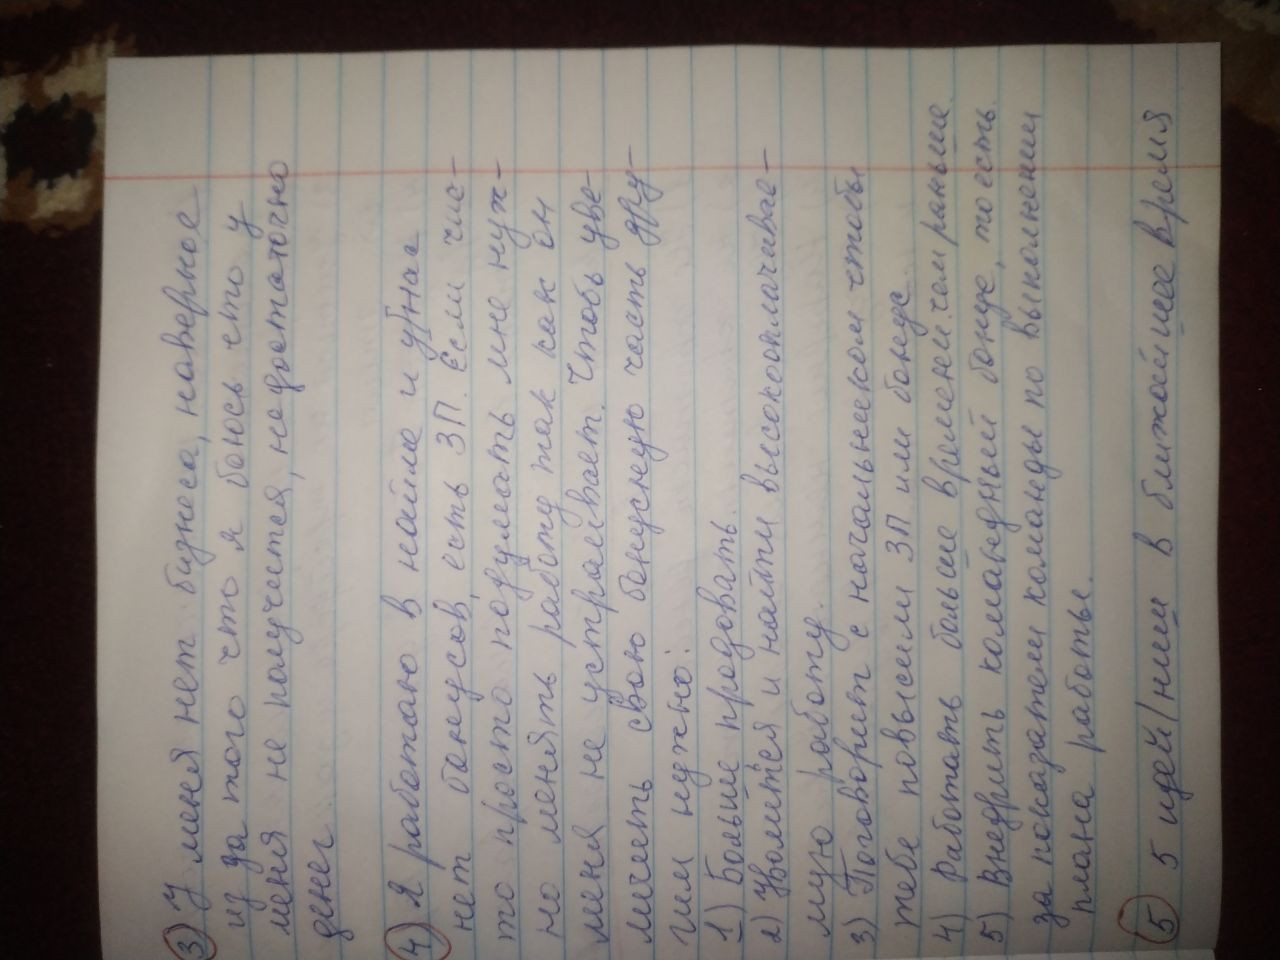 3) У меня нет бизнеса, наверное
из за того что я боюсь что у
меня не получится, недостаточно
денег.
4) Я работаю в найме и у меня
нет бонусов, есть ЗП. Если чис-
то просто подумать мне нуж-
но менять работу так как он
меня не устраивает. Чтобы уве-
личить свою бонусную часть дру-
гим нужно:
1) Больше продовать.
2) Уволиться и найти высокооплачивае-
мую работу.
3) Поговорит с начальником чтобы
тебе повысили ЗП или бонус.
4) Работать больше времени чем раньше.
5) Внедрить командный бонус, то есть
за показатели команды по выполнении
плана работы.
5 5 идей/ниш в ближайшее время